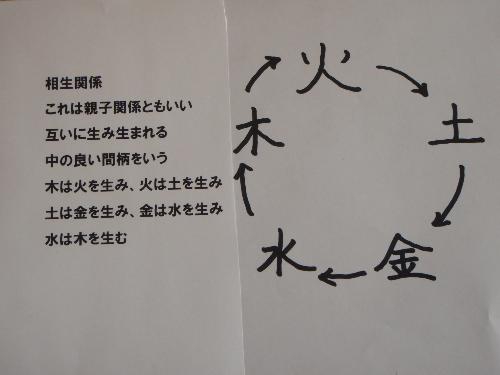 相生関係
これは親子関係ともいい
互いに生み生まれる
中の良い間柄をいう
木は火を生み、火は土を生み
土は金を生み、金は水を生み
水は木を生む
火
土
金
水
木